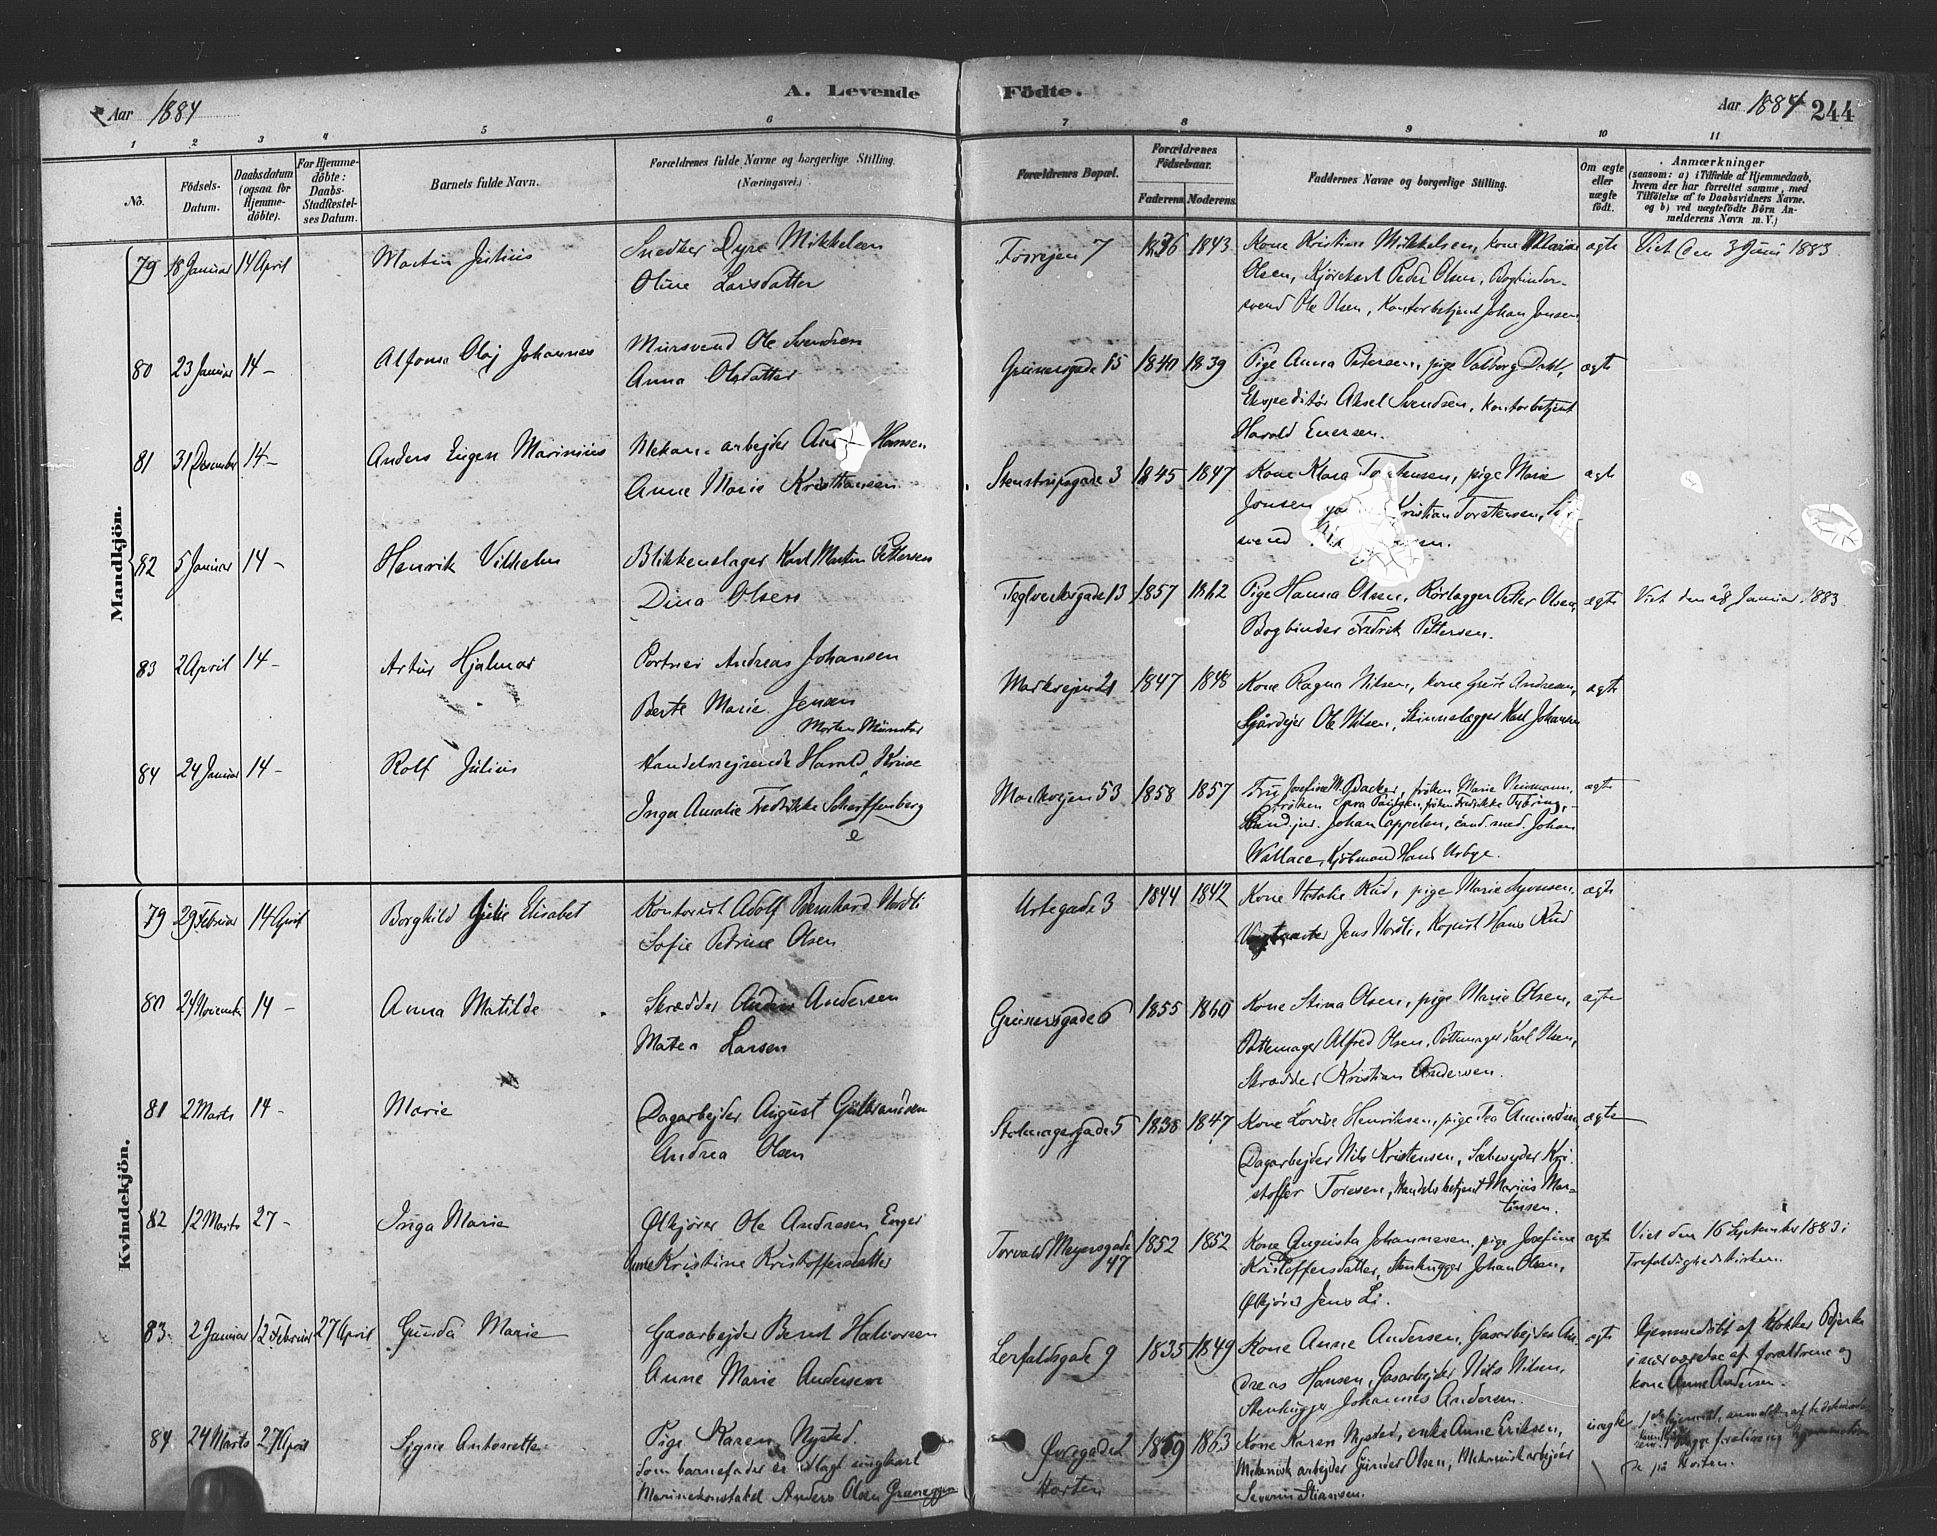 Aar 1884
A. Levende Födte.
Aar 1884 244
1 2 3 4 5 6 7 8 9 10 11
No.
Födsels-Datum.
Daabsdatum (ogsaa for Hjemme-döbte).
For Hjemme-döbte: Daabs-Stadfæstel-ses Datum.
Barnets fulde Navn.
Forældrenes fulde Navne og borgerlige Stilling.
(Næringsvei.)
Forældrenes Bopæl.
Forældrenes Födselsaar.
Faderens Moderens
Faddernes Navne og borgerlige Stilling.
Om ægte eller uægte födt.
Anmærkninger
(saasom: a) i Tilfælde af Hjemmedaab,
hvem der har forrettet samme, med
Tilföielse af to Daabsvidners Navne.
og b) ved uægtefödte Börn An-
melderens Navn m. V.)
Mandkjön.
79 18 Januar 14 April Martin Julius Snedker Dyre Mikkelsen
Oline Larsdatter
Fossvejen 7 1836 1843 Kone Kristine Mikkelsen, kone Marie
Olsen, Kjörekarl Peder Olsen, Bogbinder-
svend Ole Olsen, Kontorbetjent Johan Jensen
ægte Viet den 3 Juni 1883
80 23 Januar 14 - Alfons Olaf Johannes Mursvend Ole Svendsen
Anna Olsdatter
Grünersgade 15 1840 1839 Pige Anna Petersen, pige Valborg Dahl,
Ekspeditör Aksel Svendsen, Kontorbetjent
Harald Enersen.
ægte
81 31 Desember 14 - Anders Eugen Marinius Mekan. arbejder Hansen
Anne Marie Kristiansen
Stenstrupsgade 3 1845 1847 Kone Klara Torstensen, pige Marie
Jonsen Kristian Torstensen,
svend
ægte
82 5 Januar 14 - Henrik Vilhelm Blikkenslager Karl Martin Pettersen
Dina Olsen
Teglverksgade 13 1857 1862 Pige Hanna Olsen, Rörlægger Petter Olsen,
Bogbinder Fredrik Pettersen.
ægte Viet den 28 Januar 1883
83 2 April 14 - Artur Hjalmar Portner Andreas Johansen
Berte Marie Jensen
Markvejen 21 1847 1848 Kone Ragna Nilsen, kone Grete Andresen,
Gårdejer Ole Nilsen, Skinnelægger Karl Johansen
ægte
84 24 Januar 14 - Rolf Julius Morten Münster
Handelsrejsende Harald Kruse
Inga Amalie Fredrikke Scharffenberg
Markvejen 53 1858 1857 Fru Josefine M. Backer, fröken Marie Neumann,
fröken Sara Paulsen, fröken Fredrikke Dybring,
kand. jur. Johan Cappelen, cand. med. Johan
Wallace, Kjöbmand Hans Urbye.
ægte
Kvindekjön.
79 29 Februar 14 April Borghild Julie Elisabet Kontorist Adolf Bernhard Nordli
Sofie Petrine Olsen
Urtegade 3 1844 1842 Kone Natalie Rud, pige Marie Syversen,
Jens Nordli, Kopist Hans Rud
ægte
80 24 November 14 - Anna Matilde Skrædder Anders Andersen
Matea Larsen
Grünersgade 6 1855 1860 Kone Stina Olsen, pige Marie Olsen,
Pottemager Alfred Olsen, Pottemager Karl Olsen,
Skrædder Kristian Andersen.
ægte
81 2 Marts 14 - Marie Dagarbejder August Gulbrandsen
Andrea Olsen
Stolmagergade 5 1838 1847 Kone Lovise Henriksen, pige Tea Amundsen,
Dagarbejder Nils Kristensen, Kri-
stoffer Toresen, Handelsbetjent Marius Mar-
tinsen.
ægte
82 12 Marts 27 - Inga Marie Ölkjörer Ole Andresen Enger
Anne Kristine Kristoffersdatter
Torvald Meyersgade 47 1852 1852 Kone Augusta Johannesen, pige Josefine
Kristoffersdatter, Stenhugger Johan Olsen,
Ölkjörer Jens Li.
ægte Viet den 16 September 1883 i
Trefoldighedskirken.
83 2 Januar 12 Februar 27 April Gunda Marie Gasarbejder Bernt Halvorsen
Anne Marie Andersen
Lerfaldsgade 9 1835 1849 Kone Anne Andersen, Gasarbejder An-
dreas Hansen, Gasarbejder Nils Nilsen,
Stenhugger Johannes Andersen.
ægte Hjemmedöbt af Klokker Bjerke
i nærværelse af forældrene og
kone Anne Andersen.
84 24 Marts 27 April Signe Antonette Pige Karen Nysted.
Som barnefader er udlagt ungkarl
Marinekonstabel Anders Olsen
Övregade 2
Horten
1859 1863 Kone Karen Nysted, enke Anne Eriksen,
Mekanisk arbejder Gunder Olsen, Mekanisk arbejder
Severin Stiansen.
uægte
de på Horten.